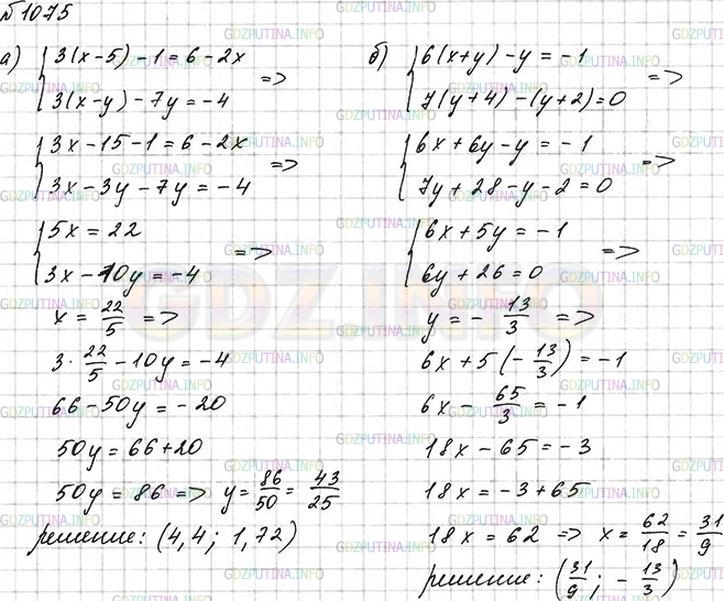 №1075
а) { 3(x-5)-1=6-2x
3(x-y)-7y=-4 =>
{ 3x-15-1=6-2x
3x-3y-7y=-4 =>
{ 5x=22
3x-10y=-4 =>
x = 22/5 =>
3·22/5-10y=-4
66-50y=-20
50y=66+20
50y=86 => y=86/50=43/25
решение: (4,4; 1,72)
б) { 6(x+y)-y=-1
7(y+4)-(y+2)=0 =>
{ 6x+6y-y=-1
7y+28-y-2=0 =>
{ 6x+5y=-1
6y+26=0 =>
y=-13/3 =>
6x+5(-13/3)=-1
6x-65/3=-1
18x-65=-3
18x=-3+65
18x=62 => x=62/18=31/9
решение: (31/9; -13/3)
GDZ.INFO
GDZPUTINA.INFO